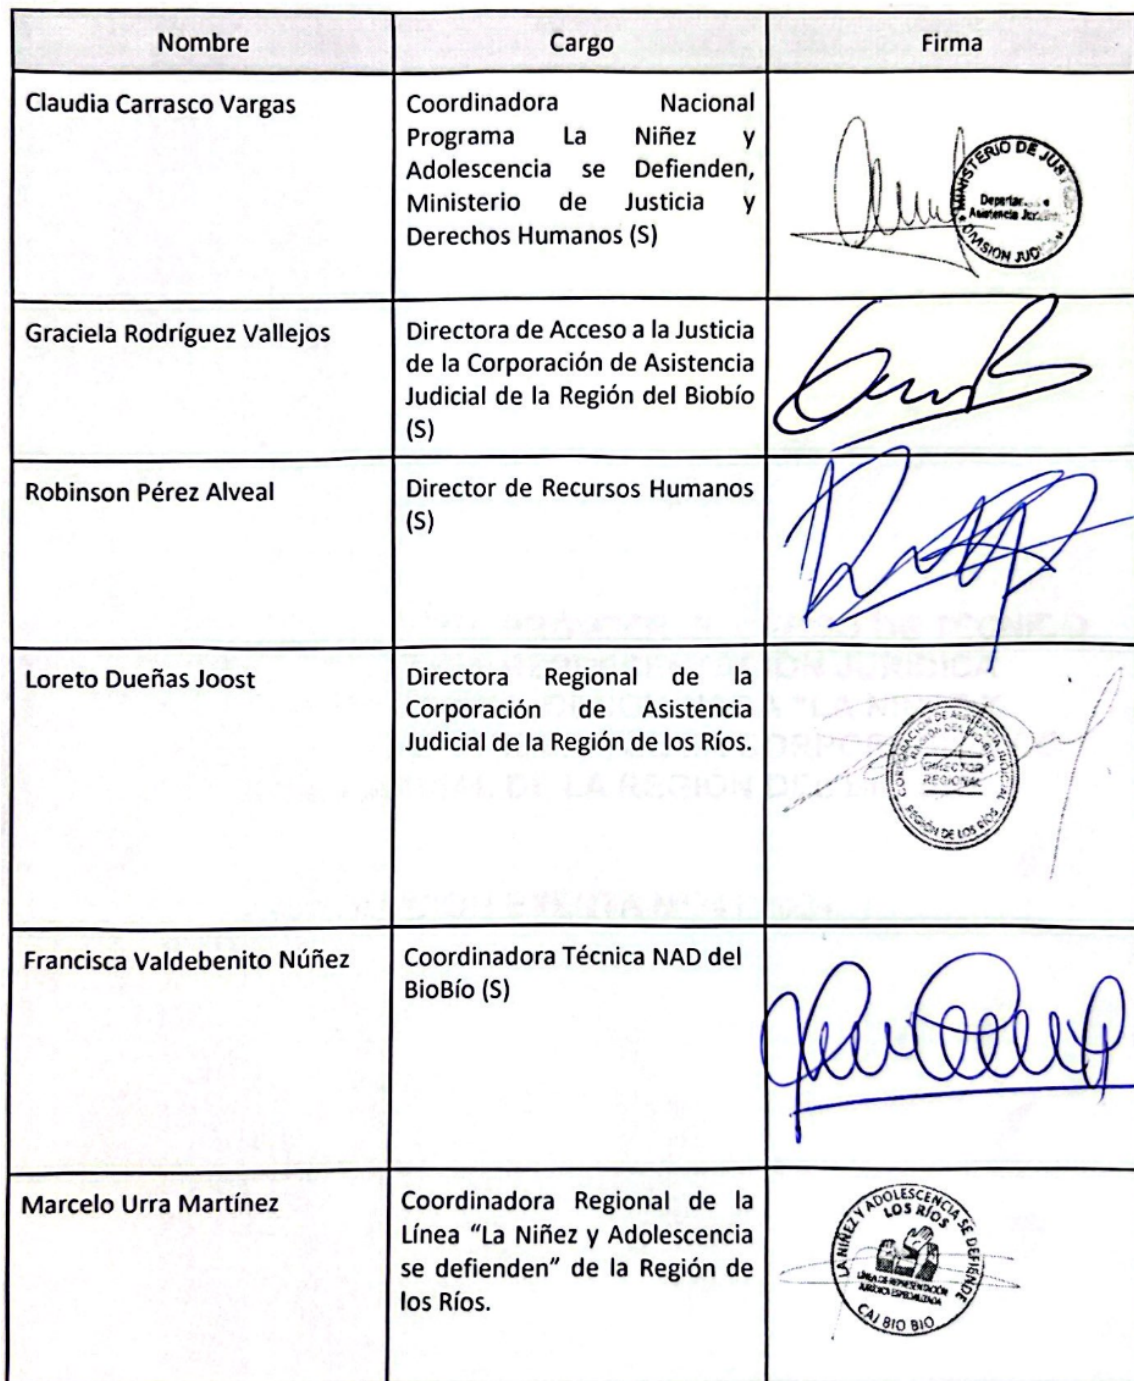 Nombre
Cargo
Firma
Claudia Carrasco Vargas
Coordinadora Nacional
Programa La Niñez y
Adolescencia se Defienden,
Ministerio de Justicia y
Derechos Humanos (S)
MINISTERIO DE
Asistencia
DIVISION
Graciela Rodríguez Vallejos
Directora de Acceso a la Justicia
de la Corporación de Asistencia
Judicial de la Región del Biobío
(S)
Robinson Pérez Alveal
Director de Recursos Humanos
(S)
Loreto Dueñas Joost
Directora Regional de la
Corporación de Asistencia
Judicial de la Región de los Ríos.
CORPORACIÓN DE ASISTENCIA JUDICIAL
REGIÓN DEL BIO-BIO
DIRECTOR
REGIONAL
REGIÓN DE LOS RÍOS
Francisca Valdebenito Núñez
Coordinadora Técnica NAD del
BioBío (S)
Marcelo Urra Martínez
Coordinadora Regional de la
Línea “La Niñez y Adolescencia
se defienden” de la Región de
los Ríos.
LA NIÑEZ Y ADOLESCENCIA SE DEFIENDE
LOS RÍOS
LÍNEA DE REPRESENTACIÓN
JURÍDICA ESPECIALIZADA
CAJ BIO BIO